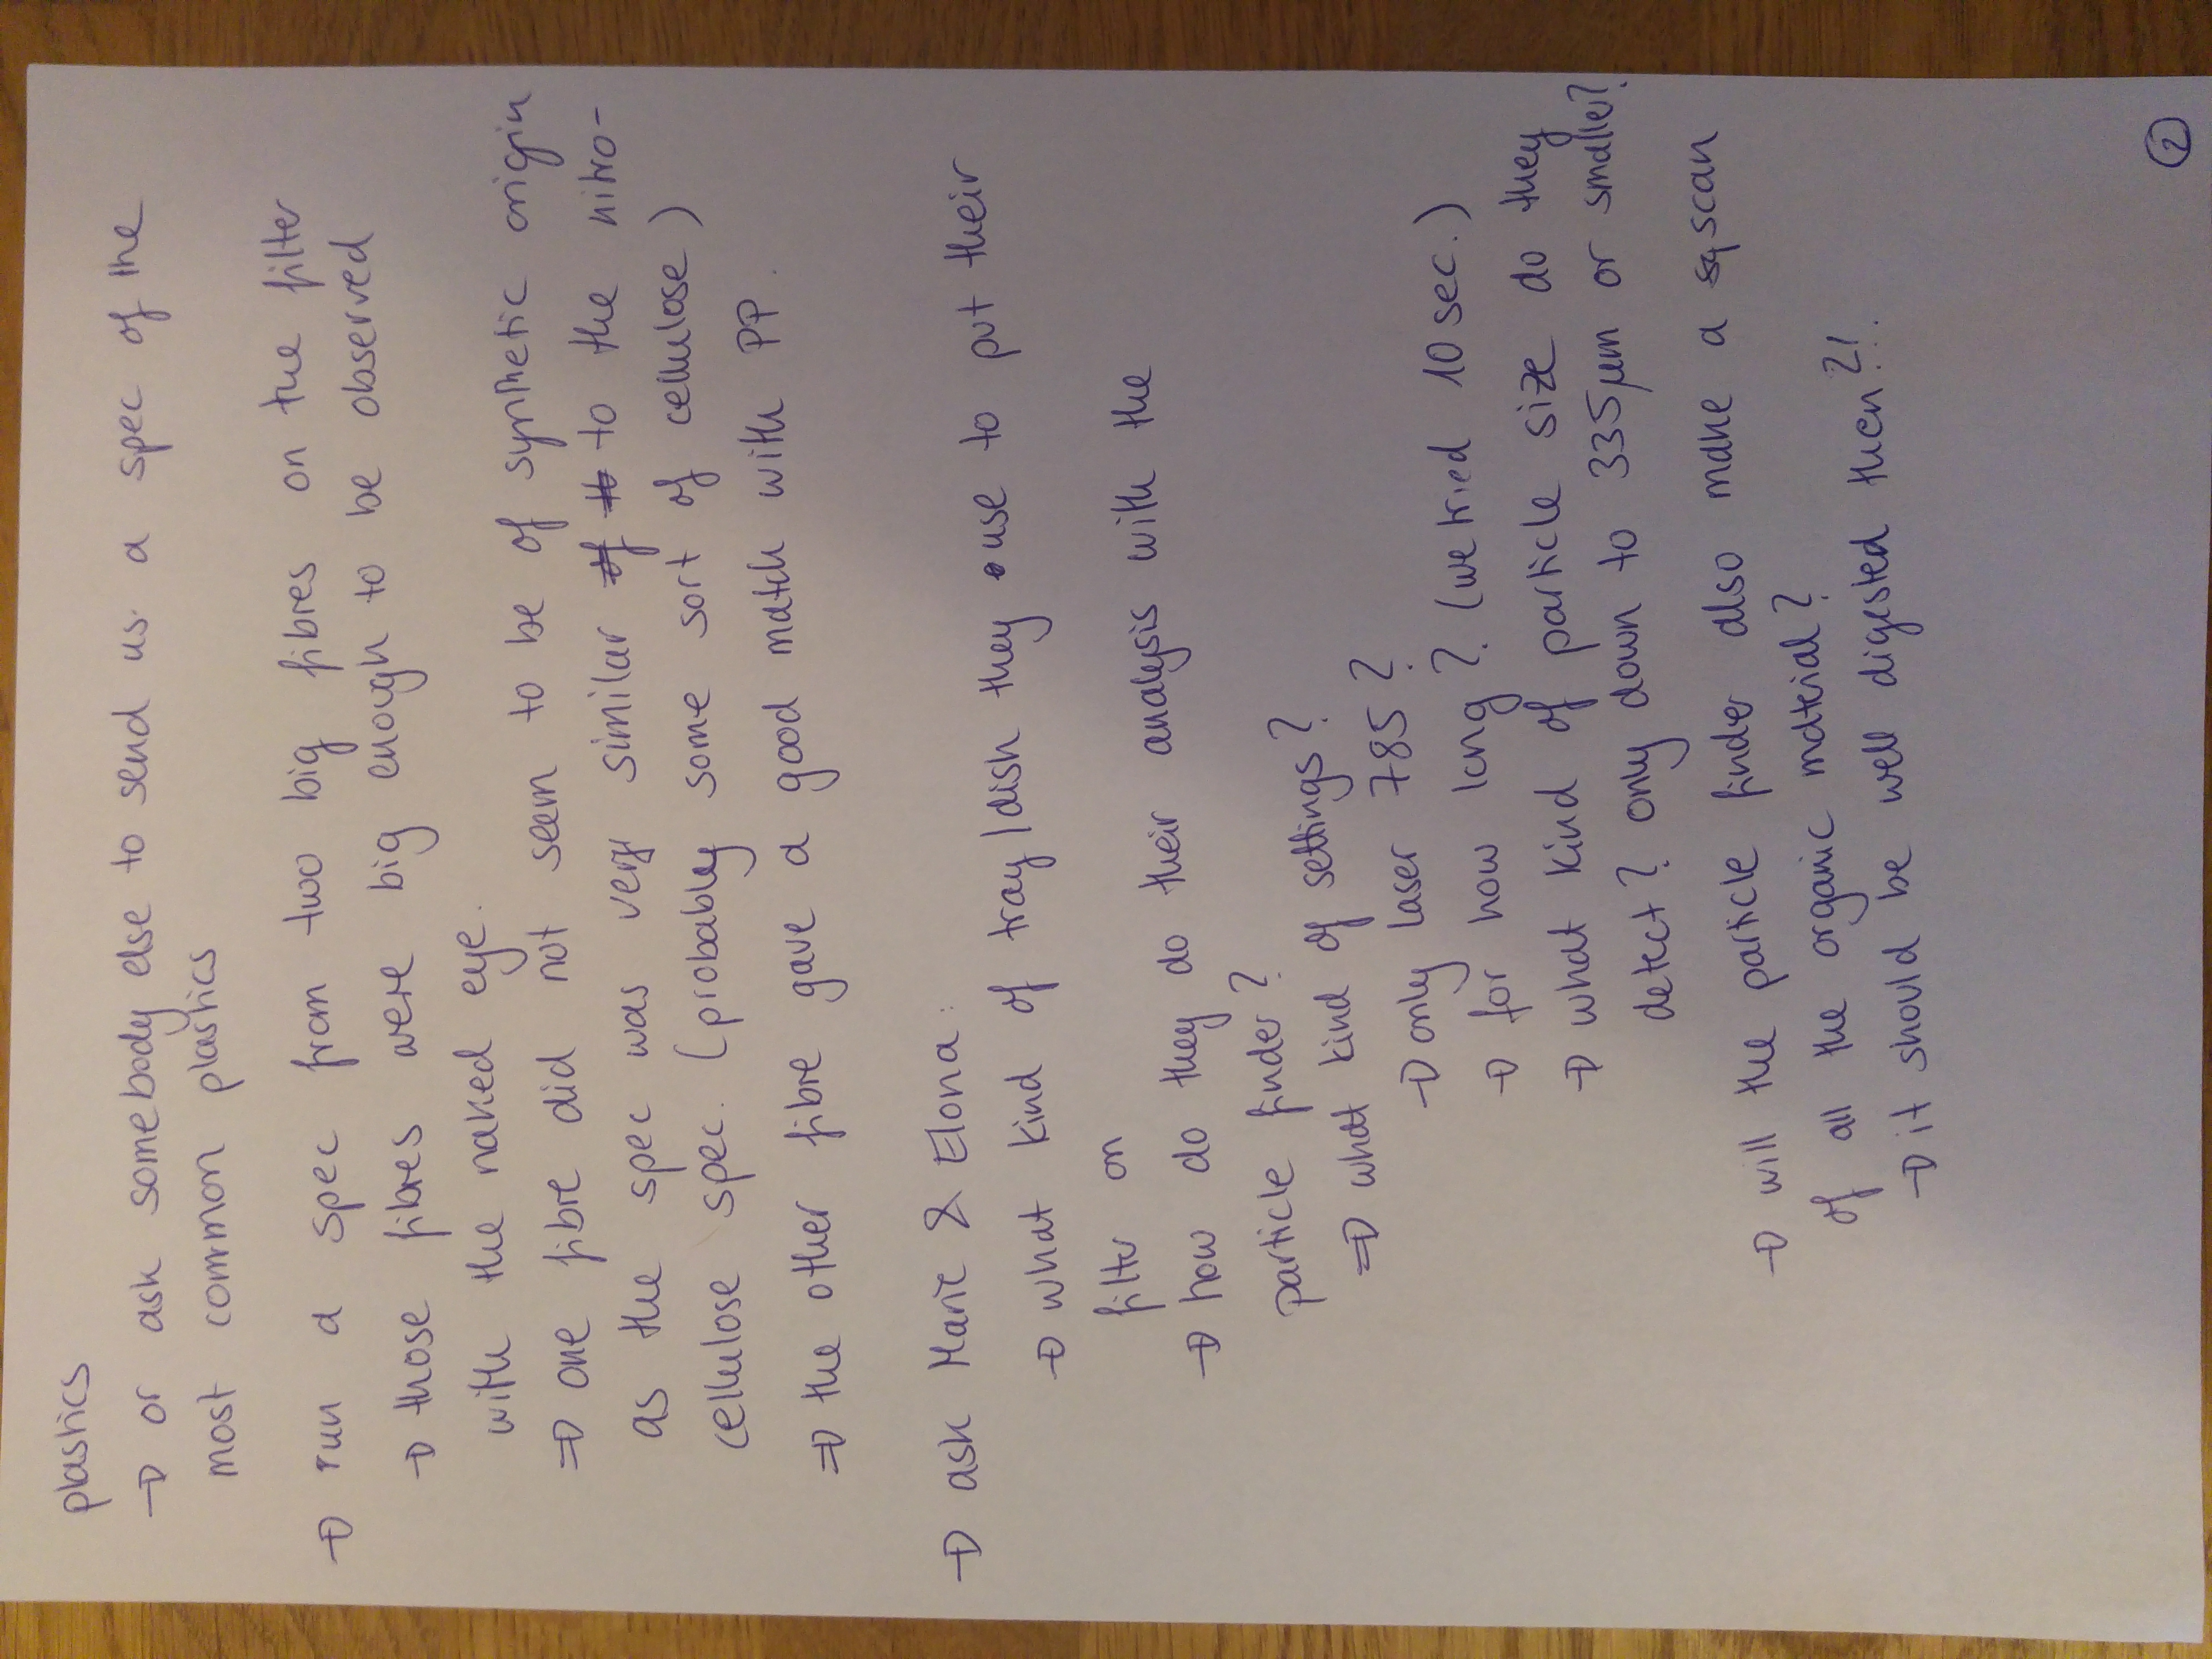 plastics
→ or ask somebody else to send us a spec of the
most common plastics
→ run a spec from two big fibres on the filter
→ those fibres were big enough to be observed
with the naked eye.
⇒ one fibre did not seem to be of synthetic origin
as the spec was very similar to the nitro-
cellulose spec. (probably some sort of cellulose)
⇒ the other fibre gave a good match with PP.
→ ask Marie & Elona:
→ what kind of tray/dish they use to put their
filter on
→ how do they do their analysis with the
particle finder?
⇒ what kind of settings?
→ only laser 785?
→ for how long? (we tried 10 sec.)
→ what kind of particle size do they
detect? only down to 335µm or smaller?
→ will the particle finder also make a scan
of all the organic material?
→ it should be well digested then?!
2